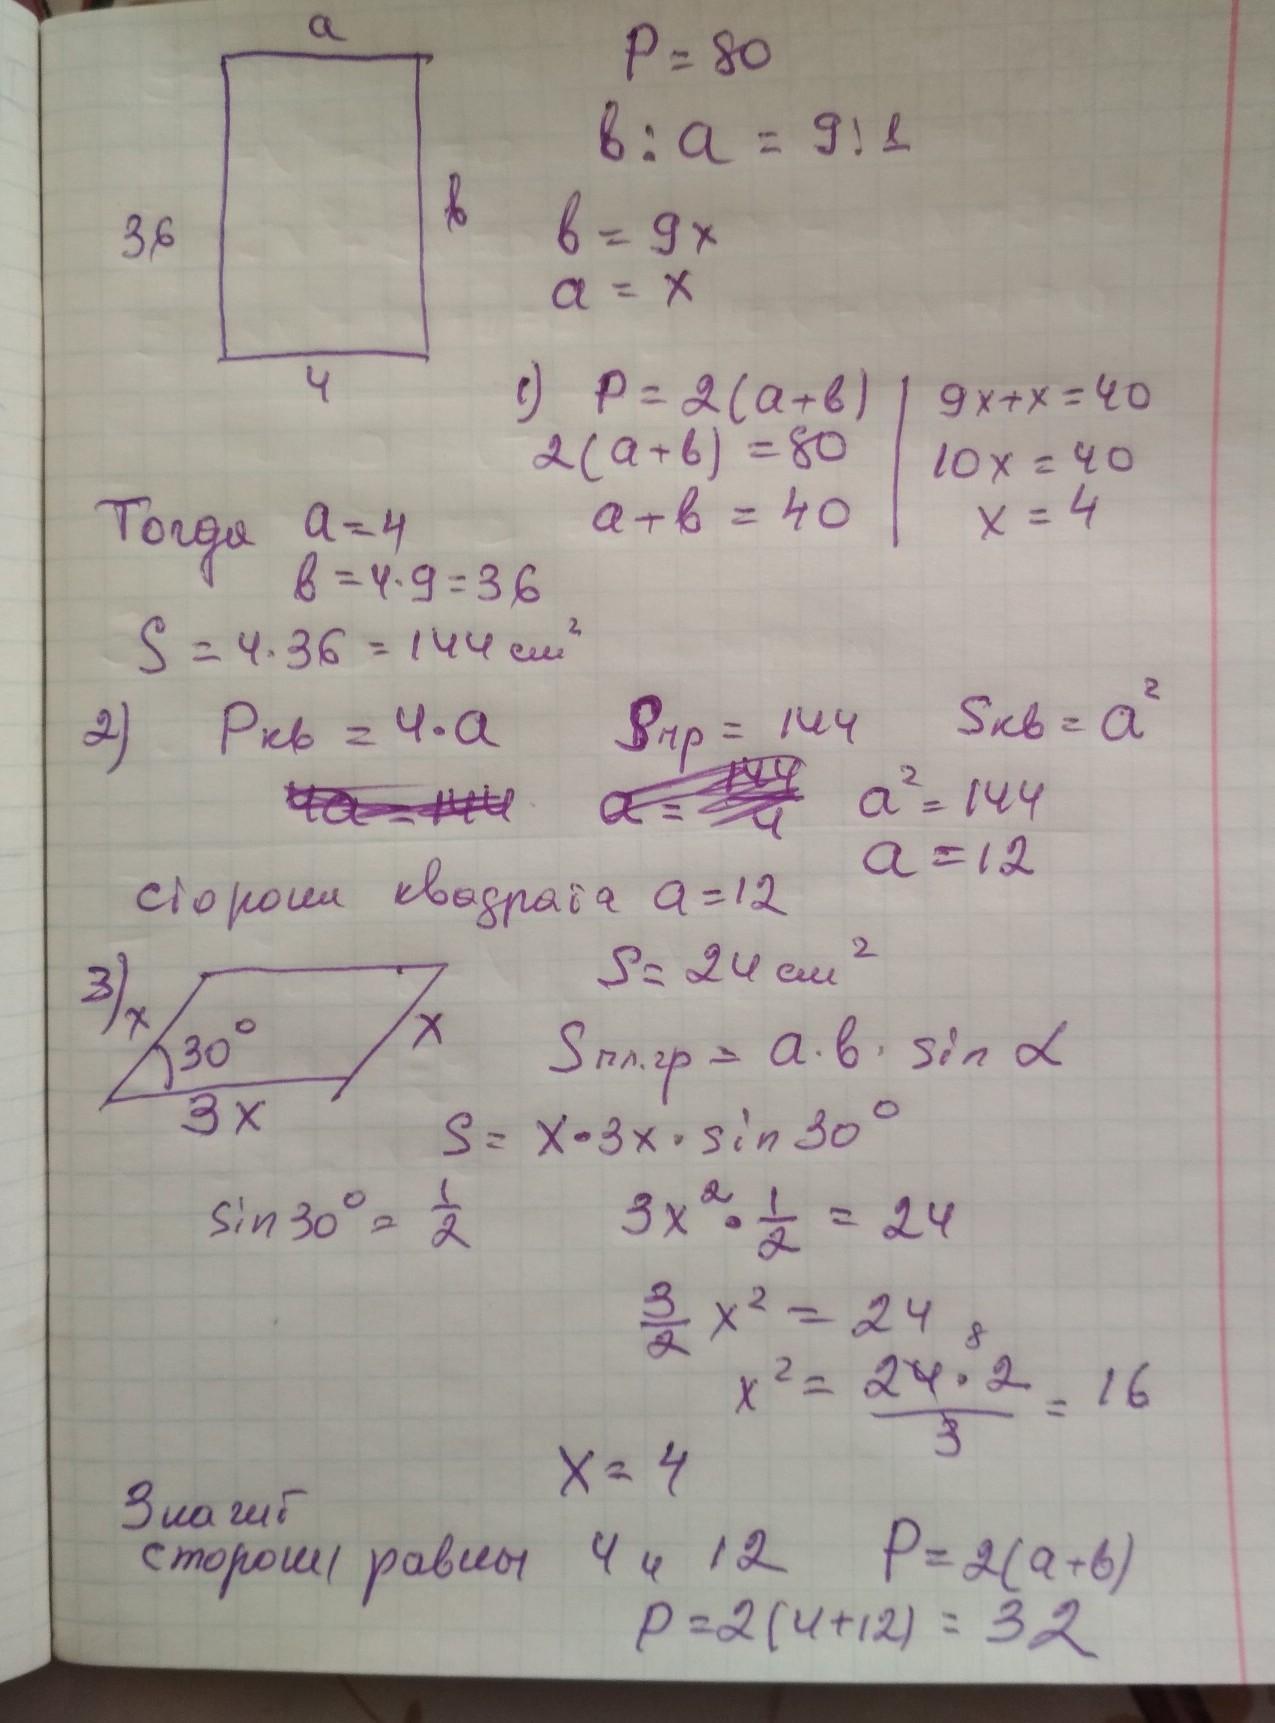 a
P = 80
в : a = 9 : 1
36
в
в = 9x
a = x
4
1) P = 2(a+в) | 9x+x=40
2(a+в) = 80 | 10x = 40
a+в = 40 | x = 4
Тогда a=4
в=4·9=36
S = 4·36 = 144 см²
2) Pкв = 4·a Sпр = 144 Sкв = a²
4a = 144 a = 144/4 a² = 144
a = 12
сторона квадрата a=12
3) x 30° x 3x
S = 24 см²
Sпл.гр = a·в·sin α
S = x·3x·sin30°
sin30° = 1/2 3x²·1/2 = 24
3/2 x² = 24
x² = 24·2/3 = 16
8
x = 4
Значит
стороны равны 4 и 12 P=2(a+в)
P=2(4+12) = 32